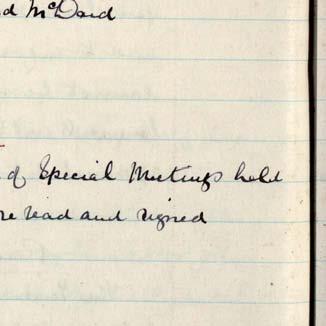 d McDaid
of Special Meetings held
re read and signed